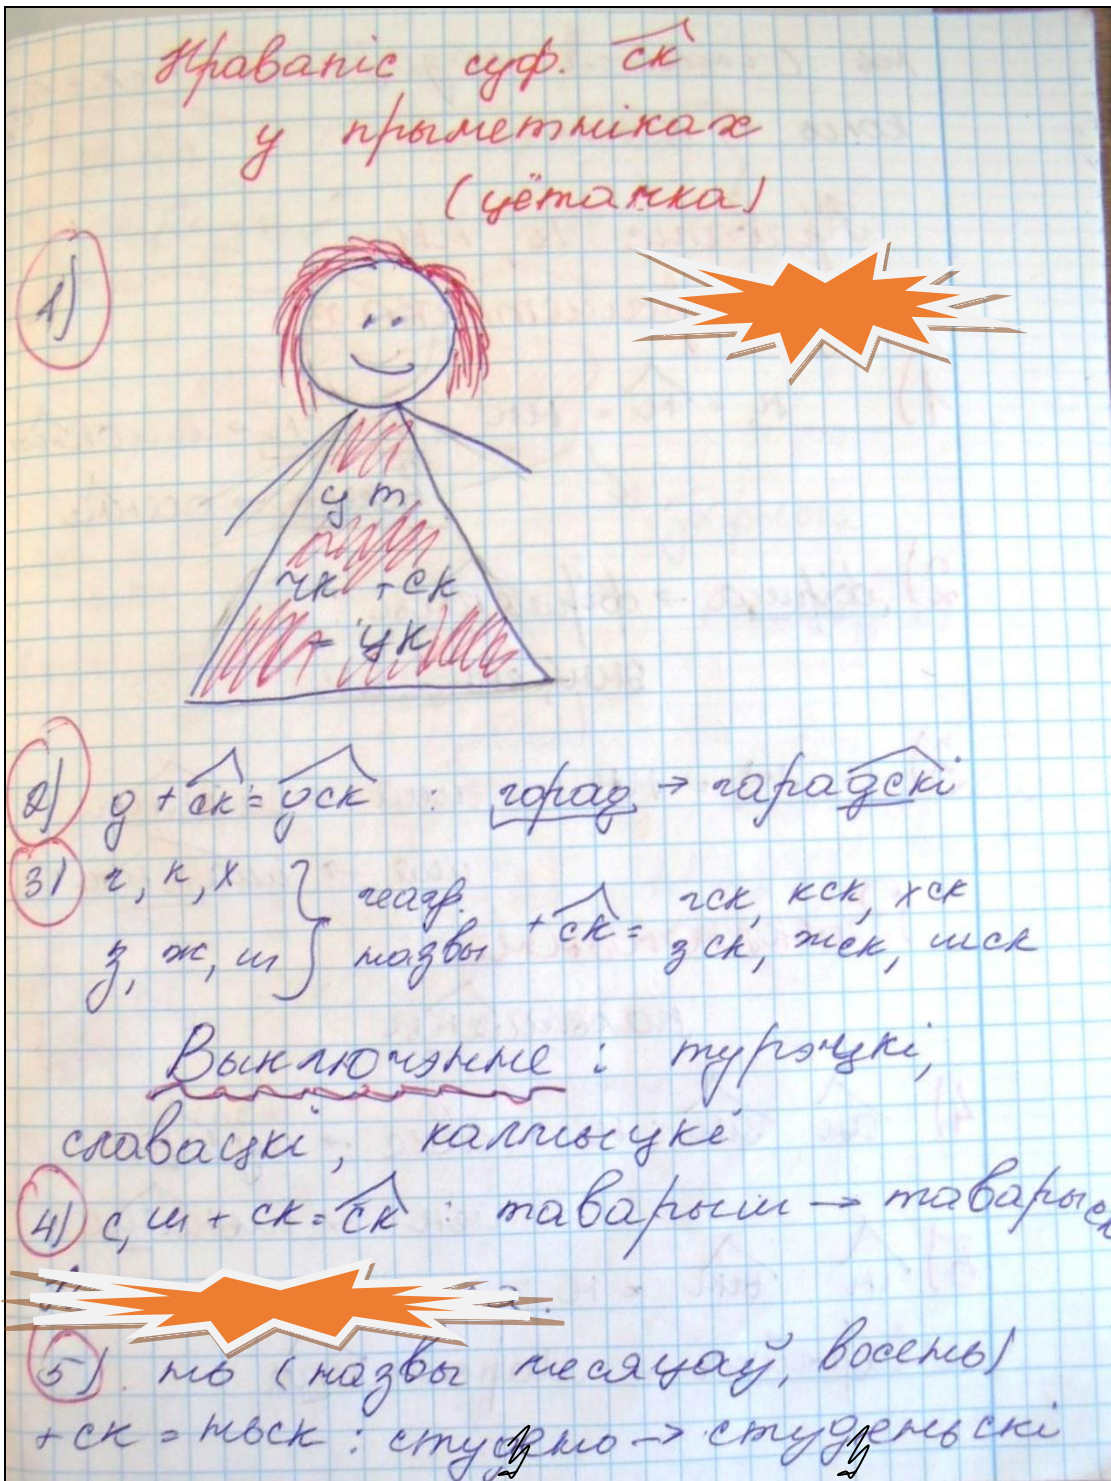 Правапіс суф. ск
у прыметніках
(цётачка)
1)
ц т
чк + ск
= цк
2) д + ск = дск : горад → гарадскі
3) г, к, х } геагр. + ск = гск, кск, хск
з, ж, ш } назвы зск, жск, шск
Выключэнне : турэцкі,
славацкі, калмыцкі
4) с, ш + ск = ск : таварыш → таварыск
5) нь (назвы месяцаў, восень)
+ ск = ньск : студзень → студзеньскі